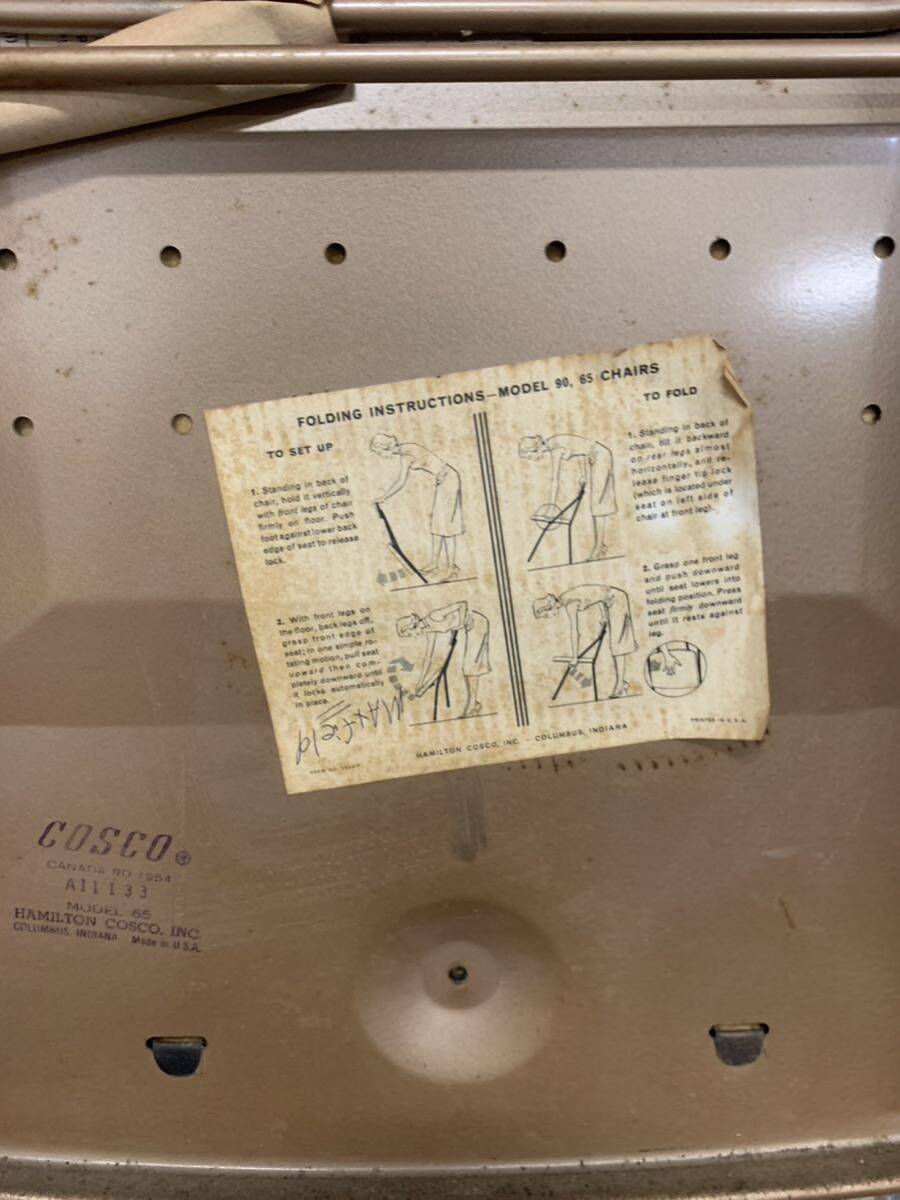 FOLDING INSTRUCTIONS—MODEL 90, 65 CHAIRS
TO SET UP
1. Standing in back of
chair, hold it vertically
with front legs of chair
firmly on floor. Push
foot against lower back
edge of seat to release
lock.
2. With front legs on
the floor, back legs off,
grasp front edge of
seat; in one simple ro-
tating motion, pull seat
upward then com-
pletely downward until
it locks automatically
in place.
TO FOLD
1. Standing in back of
chair, tilt it backward
on rear legs almost
horizontally, and re-
lease finger tip lock
(which is located under
seat on left side of
chair at front leg).
2. Grasp one front leg
and push downward
until seat lowers into
folding position. Press
seat firmly downward
until it rests against
leg.
MAxfield
HAMILTON COSCO, INC. · COLUMBUS, INDIANA
PRINTED IN U.S.A.
FORM NO.
COSCO®
CANADA RD 1954
A11133
MODEL 65
HAMILTON COSCO, INC.
COLUMBUS, INDIANA Made in U.S.A.